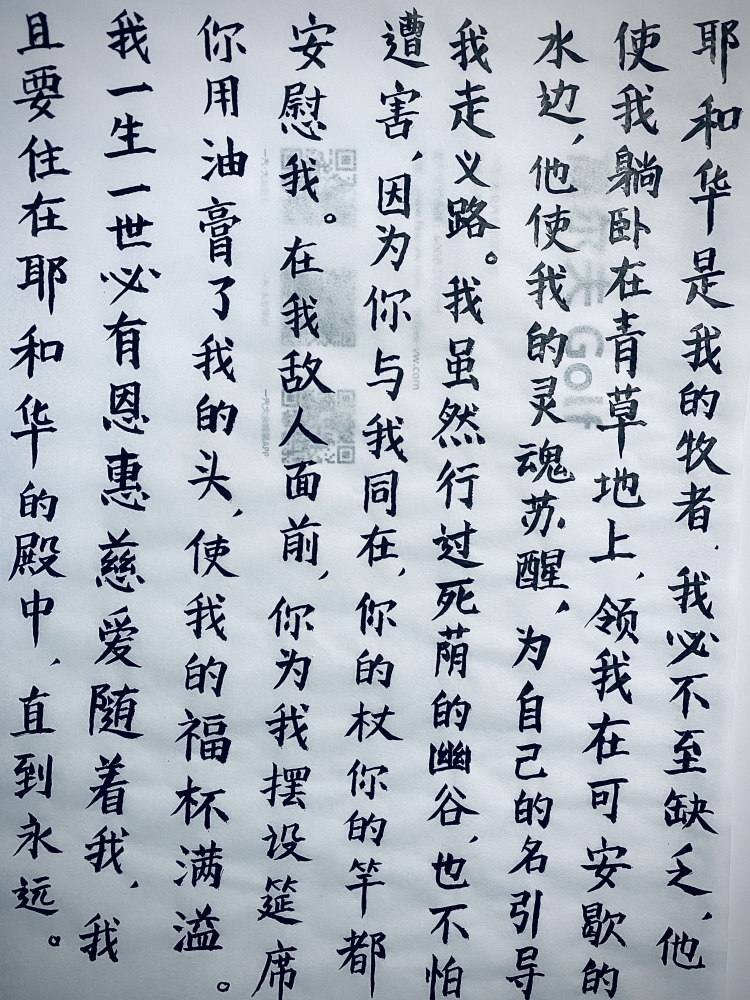 耶和华是我的牧者.我必不至缺乏,他
使我躺卧在青草地上,领我在可安歇的
水边,他使我的灵魂苏醒,为自己的名引导
我走义路。我虽然行过死荫的幽谷,也不怕
遭害,因为你与我同在,你的杖你的竿都
安慰我。在我敌人面前,你为我摆设筵席
你用油膏了我的头,使我的福杯满溢。
我一生一世必有恩惠慈爱随着我,我
且要住在耶和华的殿中,直到永远。
Golf